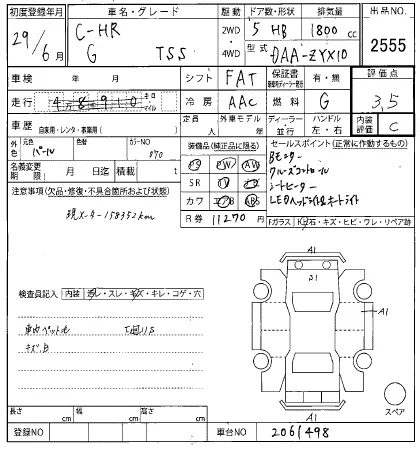 初度登録年月 車名・グレード 駆動 ドア数・形状 排気量 出品NO.
29/6月 C-HR 2WD・4WD 5 HB 1800 cc 2555
G TSS 型式 DAA-ZYX10
車検 年 月 シフト FAT 保証書 有・無 評価点
走行 48910 キロ マイル 冷房 AAC 燃料 G 3.5
車歴 自家用・レンタ・事業用( ) 定員 人 外車モデル 年 ディーラー 並行 ハンドル 左・右 内装評価 C
外色 元色 パール 色替 カラーNO 070
名義変更 月 日迄 積載 t
装備品(純正品に限る)
PS PW AW
SR
カワ エアB ABS
R券 11270 円
セールスポイント(正常に作動するもの)
Bモニター
クルーズコントロール
シートヒーター
LEDヘッドライト&オートライト
注意事項(欠品・修復・不具合箇所および状態)
現メーター158352km
Fガラス 石・キズ・ヒビ・ワレ・リペア跡
検査員記入 内装 汚レ・スレ・キズ・キレ・コゲ・穴
車内ペット毛
キズB
A1
31
A1
A1
スペア
長さ cm 幅 cm 高さ cm
登録NO 車台NO 2061498